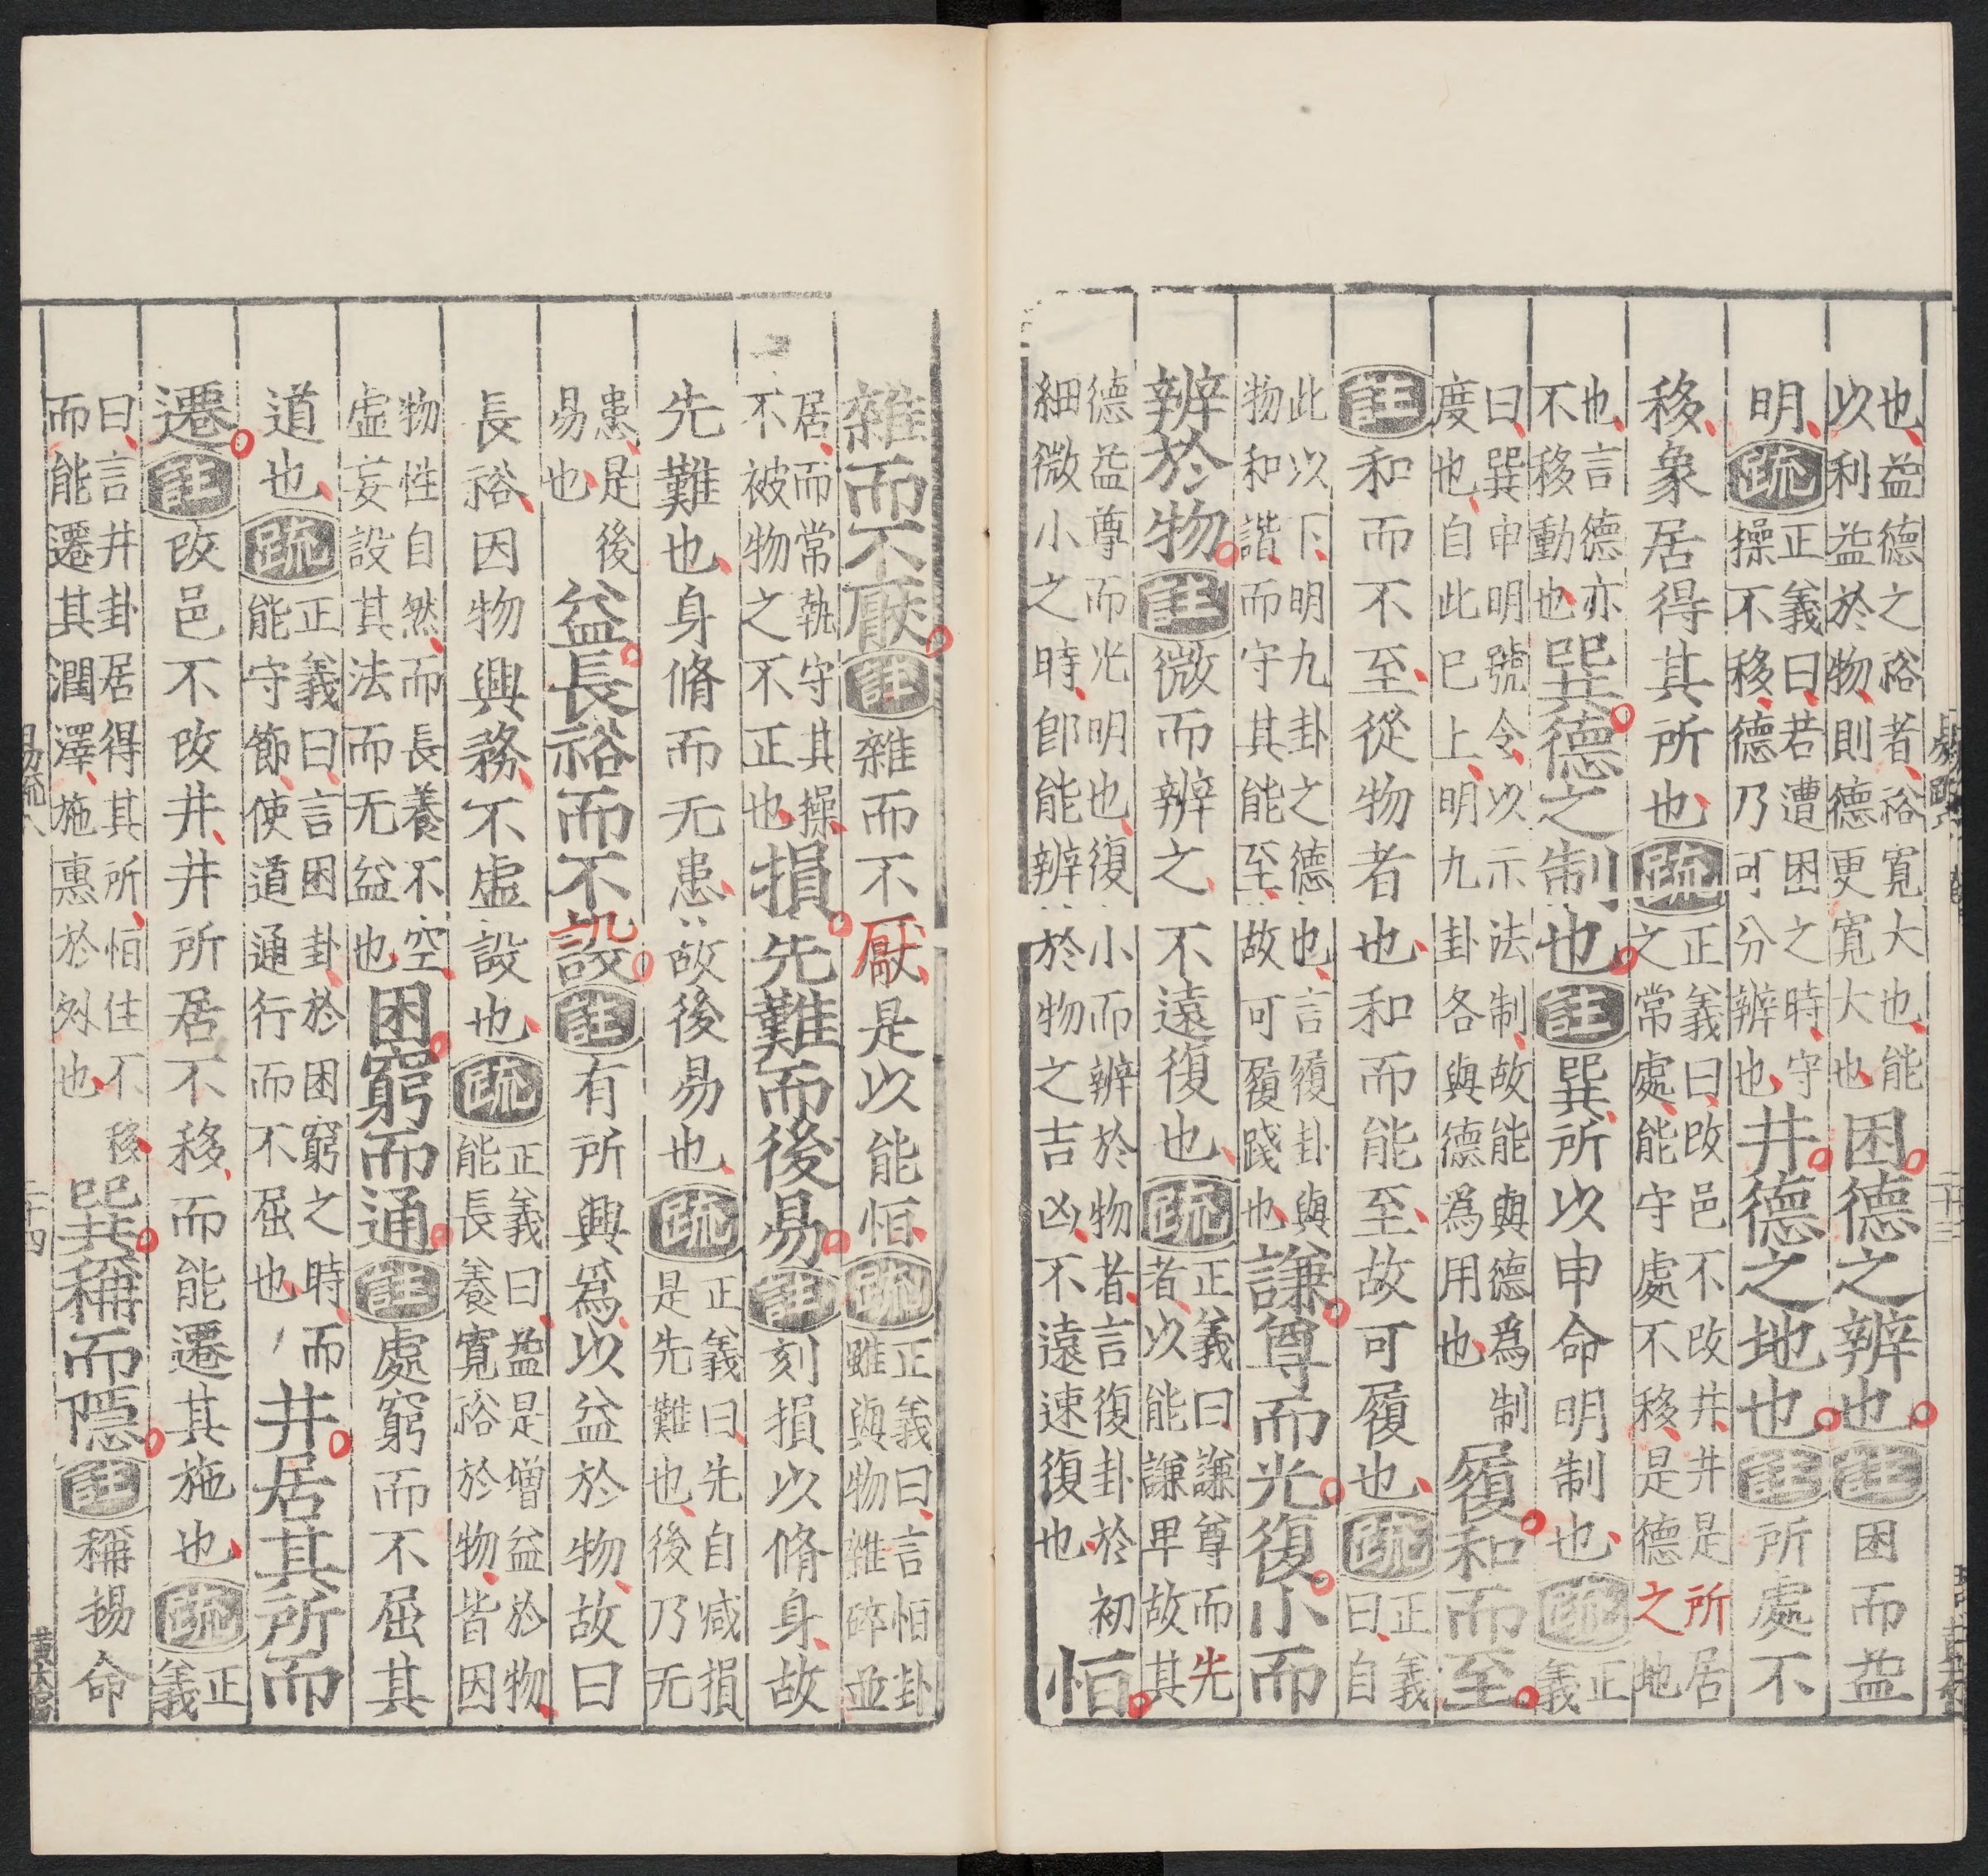 也益德之裕者裕寬大也能以利益於物則德更寬大也困德之辨也註困而益
明疏正義曰若遭困之時守操不移德乃可分辨也井德之地也註所處不
移象居得其所也疏正義曰改邑不改井井是所居之常處能守處不移是德之地
也言德亦不移動也巽德之制也註巽所以申命明制也疏正義
曰巽申明號令以示法制故能與德爲制度也自此巳上明九卦各與德爲用也履和而至
註和而不至從物者也和而能至故可履也疏正義曰自
此以下明九卦之德也言履卦與物和諧而守其能至故可履踐也謙尊而光復小而
辨於物註微而辨之不遠復也疏正義曰謙尊而先者以能謙卑故其
德益尊而光明也復小而辨於物者言復卦於初細微小之時即能辨於物之吉凶不遠速復也恒
雜而不厭註雜而不厭是以能恒疏正義曰言恒卦雖與物雜碎並
居而常執守其操不被物之不正也損先難而後易註刻損以脩身故
先難也身脩而无患故後易也疏正義曰先自減損是先難也後乃无
患是後易也益長裕而不設註有所興爲以益於物故曰
長裕因物興務不虛設也疏正義曰益是增益於物能長養寬裕於物皆因
物性自然而長養不空虛妄設其法而无益也困窮而通註處窮而不屈其
道也疏正義曰言困卦於困窮之時而能守節使道通行而不屈也井居其所而
遷註改邑不改井井所居不移而能遷其施也疏正義
曰言井卦居得其所恒住不移而能遷其潤澤施惠於外也巽稱而隱註稱揚命
易疏八
二十四